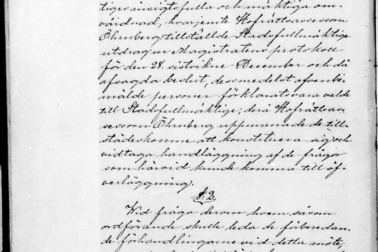 tiges insigtsfulla och nitiska om-
vårdnad, hvarjemte Hofrättsassessorn
Öhnberg tillställde Stadsfullmäktige
utdrag ur Magistratens protokoll
för den 28 sistvikne December och då
afsagda beslut, desmedelst ofvanbe-
nämlde personer förklarats vara valde
till Stadsfullmäktige, dera Hofrättsas-
sessorn Öhnberg uppmanade de till-
städeskomne att konstituera sig och
vidtaga handläggning af de frågor
som härvid kunde komma till öf-
verläggning.
§ 2.
Vid fråga derom hvem såsom
ordförande skulle leda de förbered-
de förhandlingarne vid detta möte,